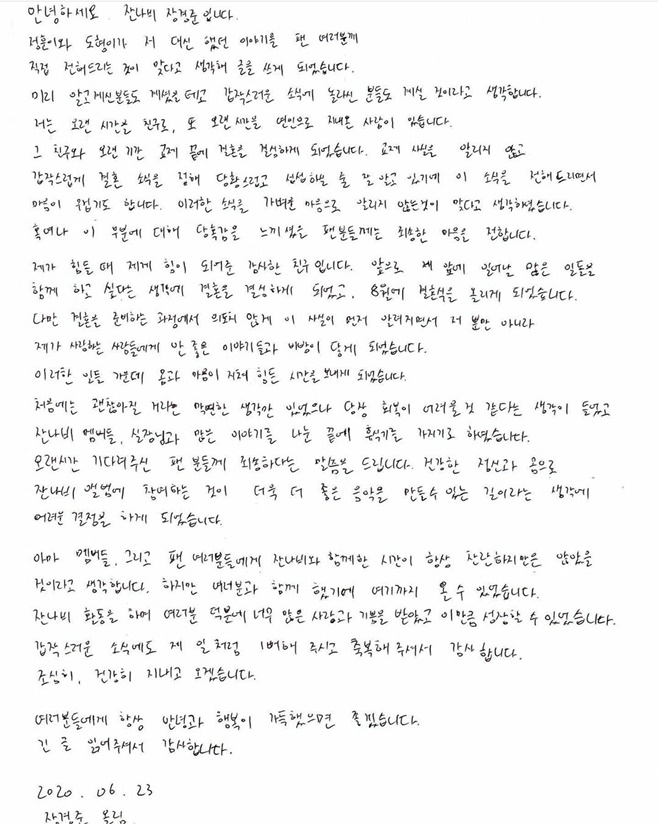 안녕하세요 잔나비 장경준입니다.
정훈이와 도형이가 저 대신 했던 이야기를 팬 여러분께
직접 전해드리는 것이 맞다고 생각해 글을 쓰게 되었습니다.
미리 알고계신분들도 계셨을테고 갑작스러운 소식에 놀라신 분들도 계실 것이라고 생각합니다.
저는 오랜 시간을 친구로, 또 오랜 시간을 연인으로 지내온 사람이 있습니다.
그 친구와 오랜 기간 교제 끝에 결혼을 결심하게 되었습니다. 교제 사실을 알리지 않고
갑작스럽게 결혼 소식을 전해 당황스럽고 섭섭하실 줄 잘 알고 있기에 이 소식을 전해드리면서
마음이 무겁기도 합니다. 이러한 소식을 가벼운 마음으로 알리지 않는것이 맞다고 생각하였습니다.
혹여나 이 부분에 대해 당혹감을 느끼셨을 팬분들께는 죄송한 마음을 전합니다.
제가 힘들 때 제게 힘이 되어준 감사한 친구입니다. 앞으로 제 앞에 일어날 많은 일들을
함께 하고 싶다는 생각에 결혼을 결심하게 되었고, 8월에 결혼식을 올리게 되었습니다.
다만 결혼을 준비하는 과정에서 의도치 않게 이 사실이 먼저 알려지면서 저 뿐만 아니라
제가 사랑하는 사람들에게 안 좋은 이야기들과 비방이 닿게 되었습니다.
이러한 일들 가운데 몸과 마음이 지쳐 힘든 시간을 보내게 되었습니다.
처음에는 괜찮아질 거라는 막연한 생각만 있었으나 당장 회복이 어려울것 같다는 생각이 들었고
잔나비 멤버들, 실장님과 많은 이야기를 나눈 끝에 휴식기를 가지기로 하였습니다.
오랜시간 기다려주신 팬 분들께 죄송하다는 말씀을 드립니다. 건강한 정신과 몸으로
잔나비 앨범에 참여하는 것이 더욱 더 좋은 음악을 만들수 있는 길이라는 생각에
어려운 결정을 하게 되었습니다.
아마 멤버들, 그리고 팬 여러분들에게 잔나비와 함께한 시간이 항상 찬란하지만은 않았을
것이라고 생각합니다. 하지만 여러분과 함께 했기에 여기까지 올 수 있었습니다.
잔나비 활동을 하며 여러분 덕분에 너무 많은 사랑과 기쁨을 받았고 이만큼 성장할 수 있었습니다.
갑작스러운 소식에도 제 일처럼 1번해 주시고 축복해주셔서 감사합니다.
조심히, 건강히 지내고 오겠습니다.
여러분들에게 항상 안녕과 행복이 가득했으면 좋겠습니다.
긴 글 읽어주셔서 감사합니다.
2020. 06. 23
장경준 올림